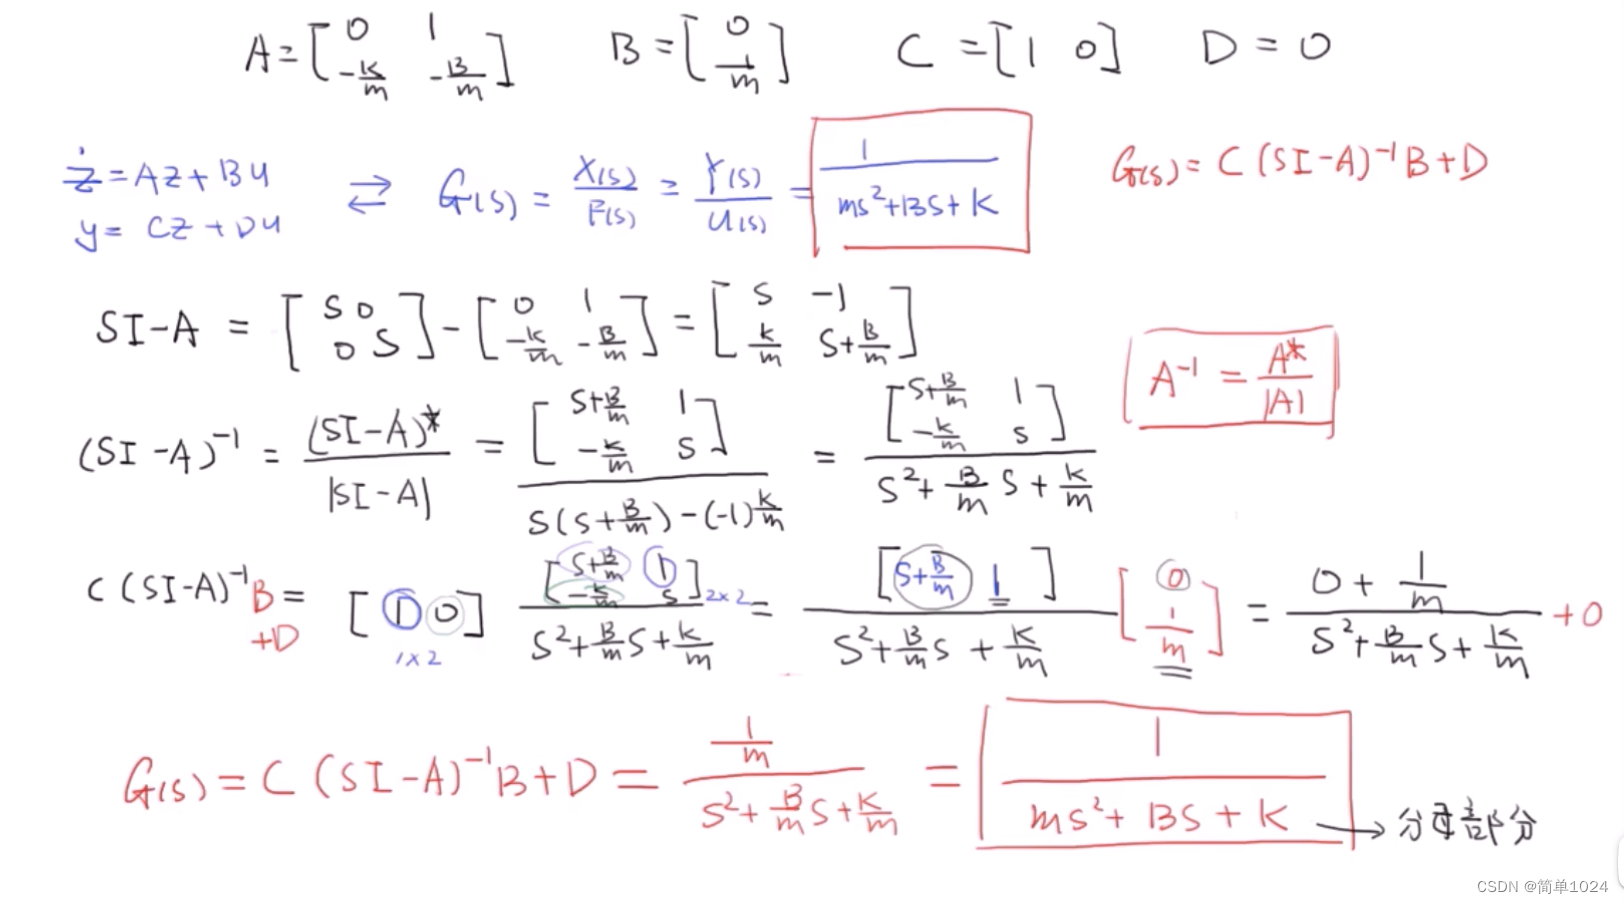 A = [0 1; -K/m -B/m]  B = [0; 1/m]  C = [1 0]  D = 0
ż = Az + Bu
y = Cz + Du
⇄ G(s) = X(s)/F(s) = Y(s)/U(s) = 1/(ms²+Bs+K)
G(s) = C (SI-A)⁻¹ B + D
SI-A = [S 0; 0 S] - [0 1; -K/m -B/m] = [S -1; K/m S+B/m]
A⁻¹ = A*/|A|
(SI-A)⁻¹ = (SI-A)*/|SI-A| = [S+B/m 1; -K/m S]/(S(S+B/m)-(-1)K/m) = [S+B/m 1; -K/m S]/(S²+B/m S+K/m)
C (SI-A)⁻¹ B + D = [1 0] 1×2 [S+B/m 1; -K/m S] 2×2/(S²+B/m S+K/m) = [S+B/m 1]/(S²+B/m S+K/m) [0; 1/m] = (0+1/m)/(S²+B/m S+K/m) +0
G(s) = C (SI-A)⁻¹ B + D = (1/m)/(S²+B/m S+K/m) = 1/(ms²+Bs+K) → 分母部分
CSDN @简单1024